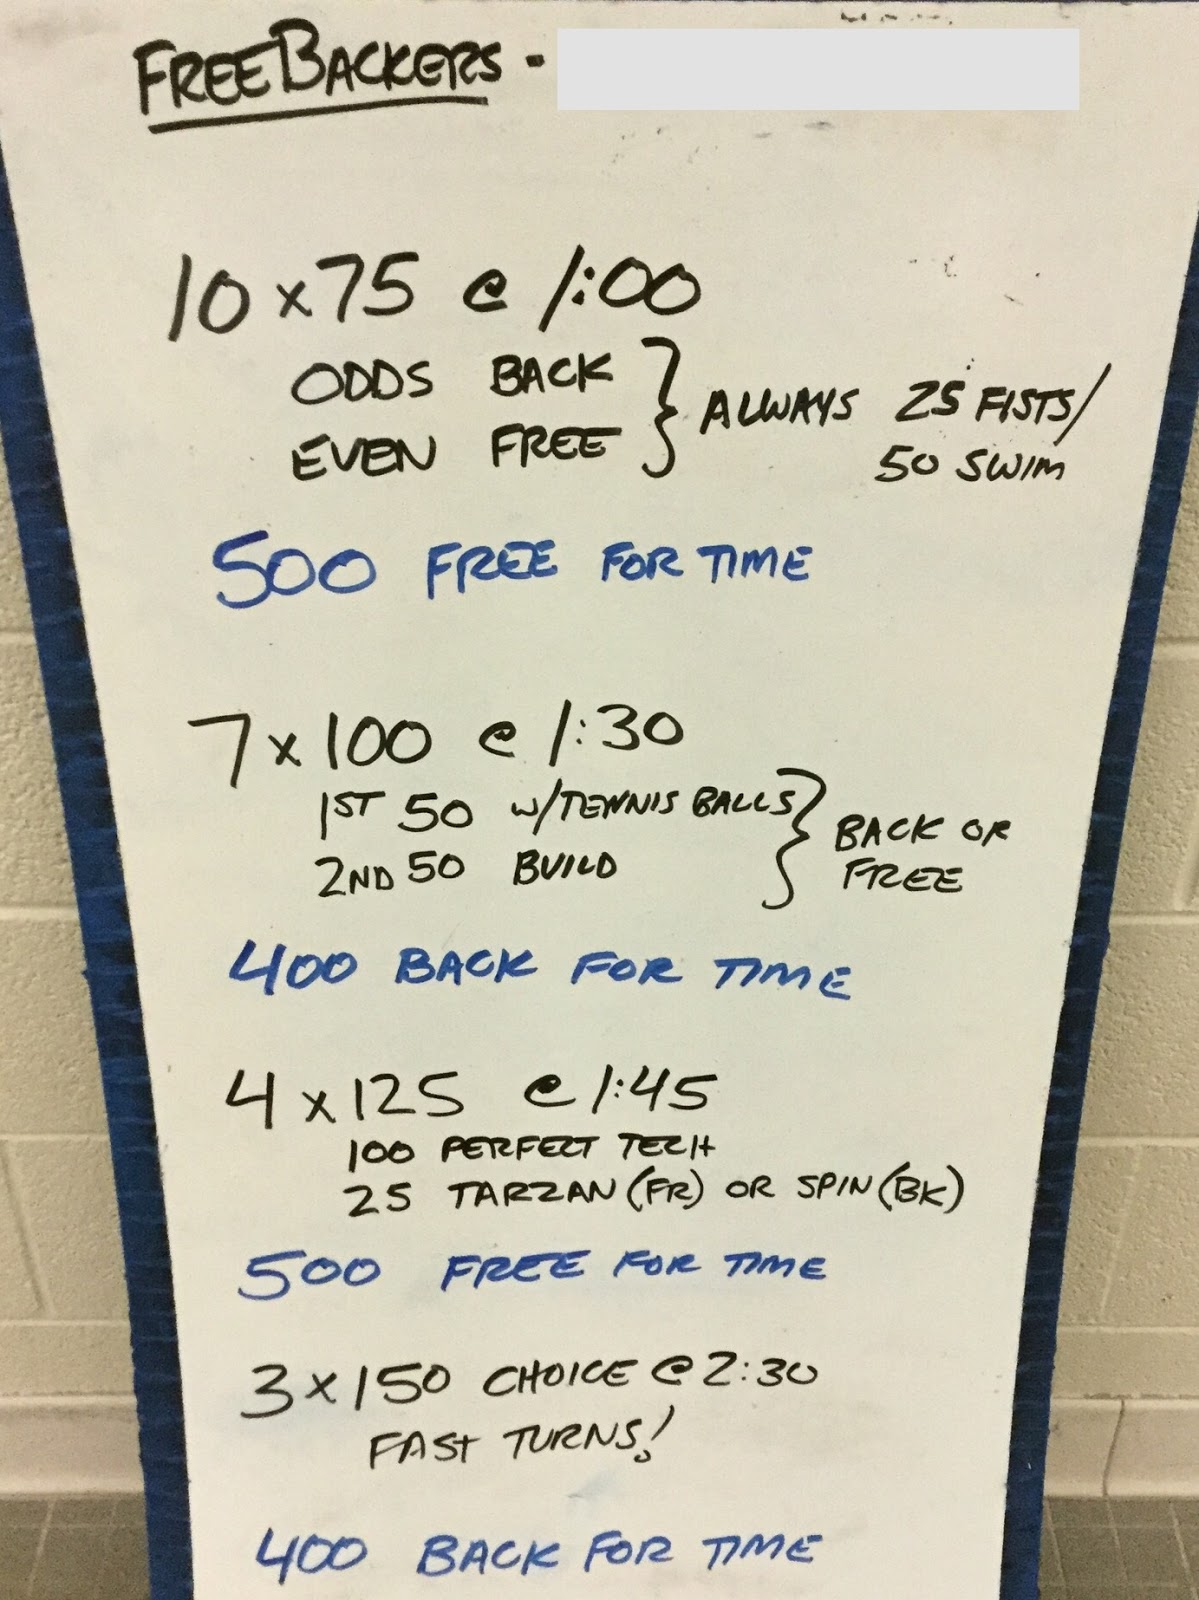 FREEBACKERS -
10 x 75 @ 1:00
ODDS BACK
EVEN FREE
} ALWAYS 25 FISTS/
50 SWIM
500 FREE FOR TIME
7 x 100 @ 1:30
1ST 50 w/TENNIS BALLS
2ND 50 BUILD
} BACK OR
FREE
400 BACK FOR TIME
4 x 125 @ 1:45
100 PERFECT TECH
25 TARZAN (FR) OR SPIN (BK)
500 FREE FOR TIME
3 x 150 CHOICE @ 2:30
FAST TURNS!
400 BACK FOR TIME